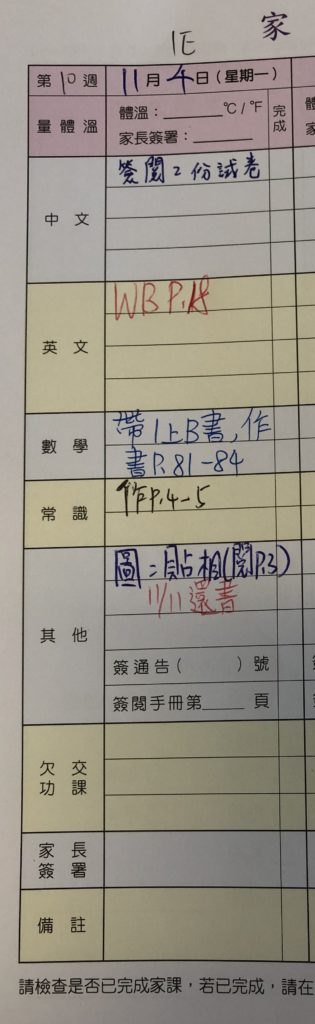 1E 家
第10週 11月4日(星期一)
量體溫 體溫:______℃/℉ 完成
家長簽署:______
中文 簽閱2份試卷
英文 WB P.18
數學 帶1上B書,作
書P.81-84
常識 作P.4-5
其他 圖:貼相(閱P.3)
11/11還書
簽通告( )號
簽閱手冊第____頁
欠交功課
家長簽署
備註
請檢查是否已完成家課,若已完成,請在